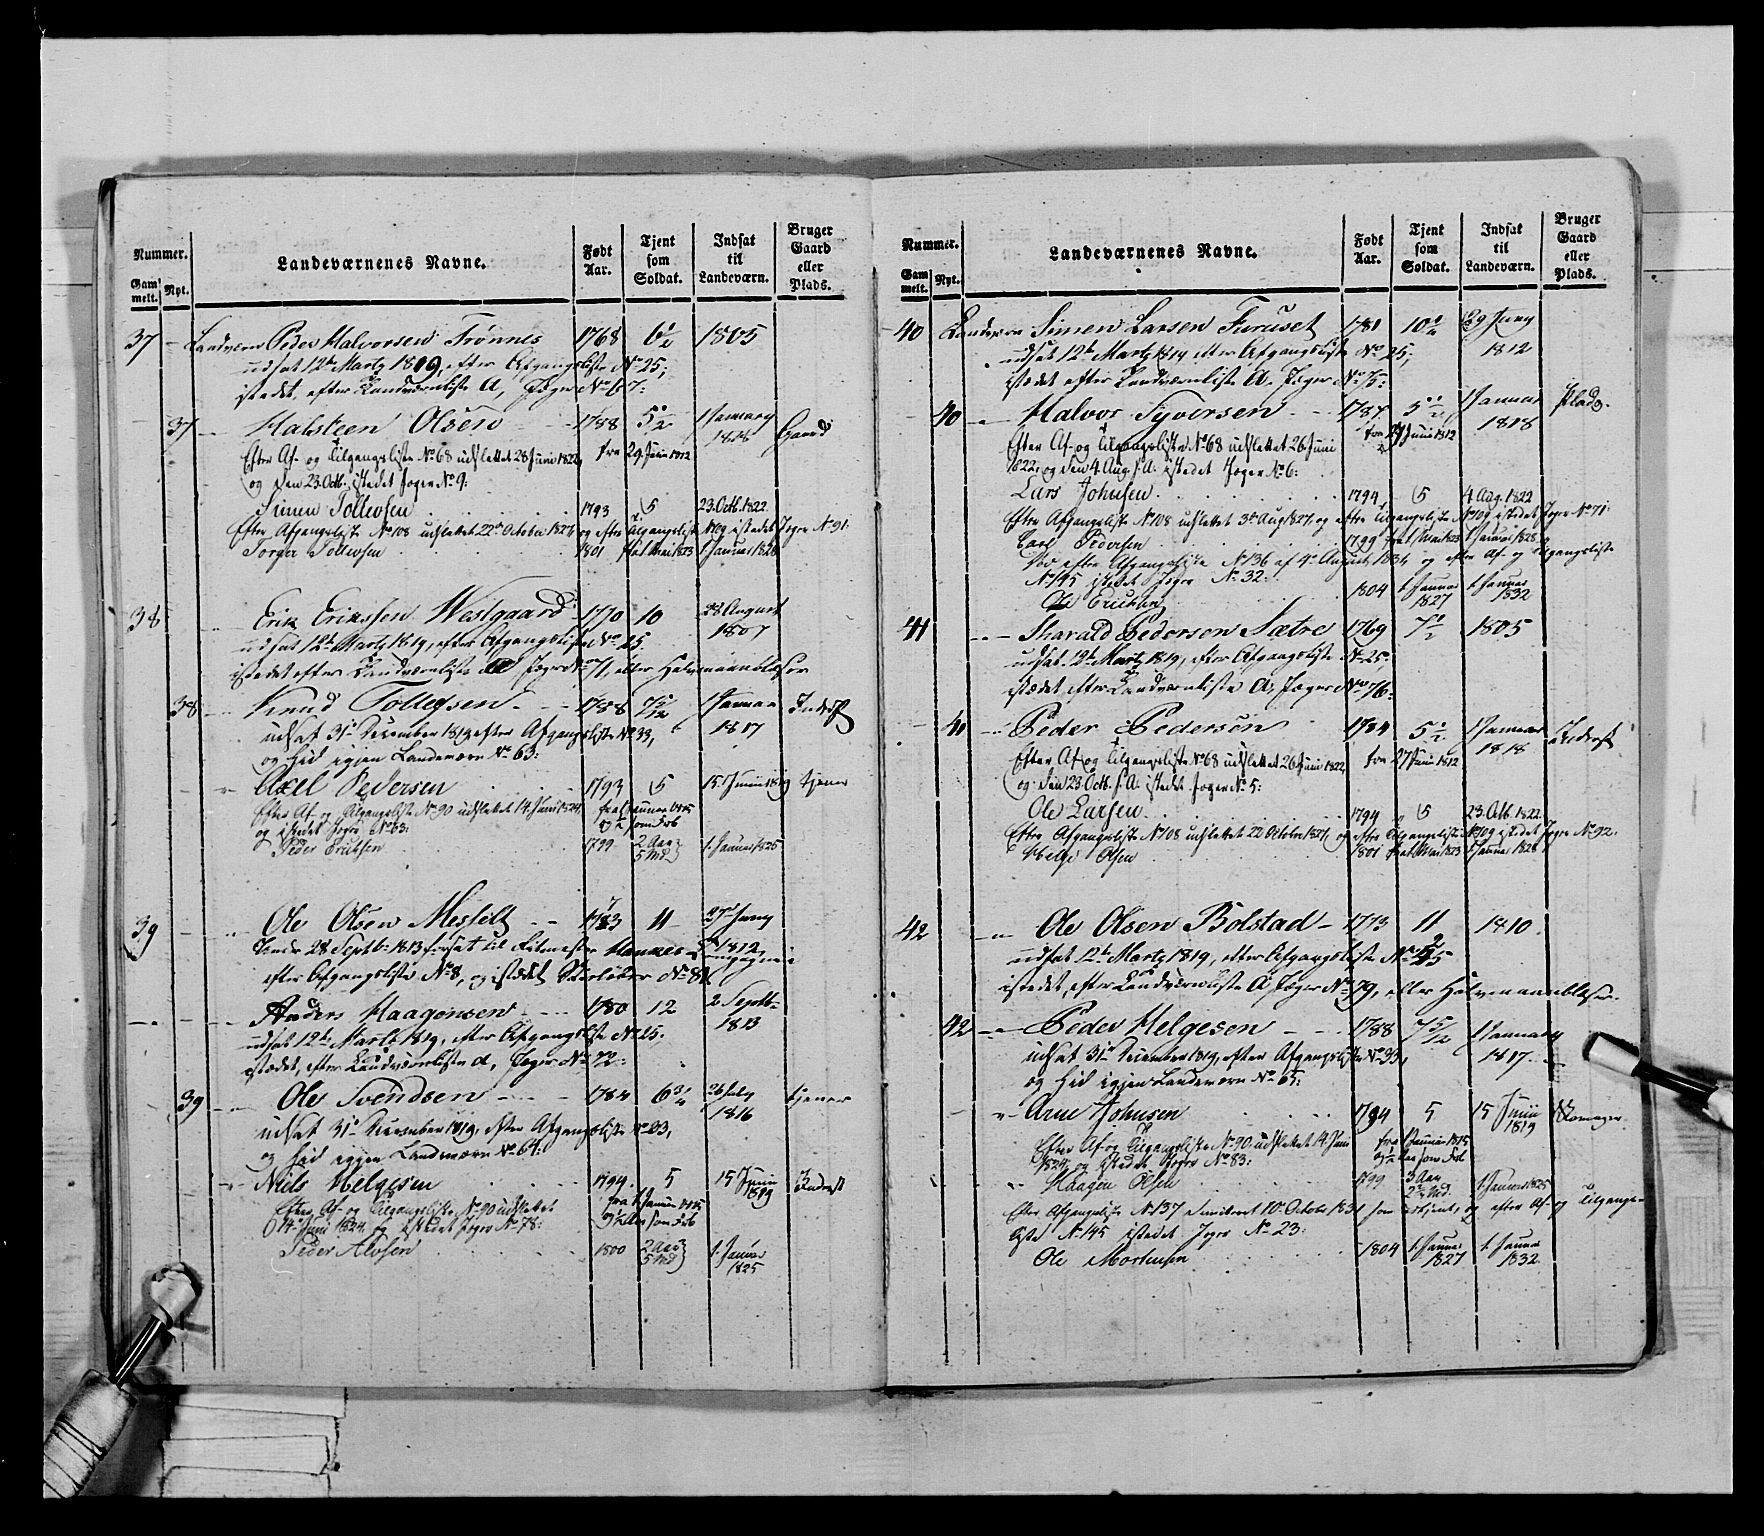 Nummer.
Gam melt. Nyt.
Landeværnenes Navne.
Født Aar.
Tjent som Soldat.
Indsat til Landeværn.
Bruger Gaard eller Plads.
37 - Landværn Peder Halvorsen Trønnes 1768 6 1/2 1805
udsat 12te Martz 1819, efter Afgangsliste No 25,
istedet, efter Landværnliste A, Jæger No 67.
37 - Halsteen Olsen 1788 5 1/2 1 January 1818 Gaard
Efter Af- og Tilgangsliste No 68 udslettet 28 Juni 1822, fra 29 Juni 1812
og den 23. Octb. istedet Jæger No 9:
Simen Tollevsen 1793 5 23. Octb. 1822
Efter Afgangsliste No 108 udslettet 22de October 1827, og efter Tilgangsliste No 109 istedet Jægr No 91:
Torger Tollevsen 1801 fra 1 Mai 1823 1 Januar 1828
38 Erik Erikssen Westgaard 1770 10 28 August 1807
udsat 12te Martz 1819, efter Afgangsliste No 25.
istedet efter Landværnliste A Jæger No 71, eller Halvmaanblæser
38 Knud Tollefsen 1788 7 5/12 1 Januar 1817 Inderst
udsat 31te December 1819 efter Afgangsliste No 33,
og hid igjen Landeværn No 63:
Axel Pedersen 1793 5 15. Junii 1819 tjener
Efter Af- og Tilgangsliste No 90 udslettet 14. Juni 1824, fra 1 Januar 1815
og istedet Jægr No 83:
Peder Eriksen 1799 2 Aar 5 Md 1. Januar 1825
39 Ole Olsen Messelt 1783 11 27de Juny 1812
efter Afgangsliste No 8, og istædet Skieløber No 81
Anders Haagensen 1780 12 2 Septb. 1813
udsat 12te Martz 1819, efter Afgangsliste No 25.
istædet, efter Landværnliste A, Jæger No 72:
39 Ole Svendsen 1784 6 3/4 26 July 1816 tjener
udsat 31te December 1819, efter Afgangsliste No 33,
og hid igjen Landeværn No 64:
Niels Helgesen 1794 5 15 Junii 1819 Inderst
Efter Af- og Tilgangsliste No 90 udslettet fra 1 Januar 1815
14. Juni 1824 og istedet Jægr No 78:
Peder Alvsen 1800 2 Aar 5 Md 1. Januar 1825
Nummer.
Gam melt. Nyt.
Landeværnenes Navne.
Født Aar.
Tjent som Soldat.
Indsat til Landeværn.
Bruger Gaard eller Plads.
40 Landværn Simen Larsen Furuset 1781 10 29 Juny 1812
udsat 12te Martz 1819 efter Afgangsliste No 25,
istædet efter Landværnliste A. Jæger No 75:
40 Halvor Syversen 1787 5 1/2 1 Januar 1818 Plads.
Efter Af- og Tilgangsliste No 68 udslettet 26. Juni fra 27 Juni 1812
1822, og den 4. Aug. s. A. istedet Jæger No 6:
Lars Johnsen 1794 5 4 Aug. 1822
Efter Afgangsliste No 108 udslettet 3de Aug 1827, og efter Tilgangsliste No 109 istedet Jægr No 71:
Carl Pedersen 1799 fra 1 Mai 1823 1 Januar 1828
efter Afgangsliste No 136 af 4de August 1831 og efter Af- og Tilgangsliste
No 145 istedet Jægr No 32:
Ole Ericksen 1804 1. Januar 1827 1. Januar 1832
41 Tharald Pedersen Sætre 1769 7 1/2 1805
udsat 12te Martz 1819, efter Afgangsliste No 25.
istædet, efter Landværnliste A, Jæger No 76:
41 Peder Pedersen 1784 5 1/2 1 Januar 1818 Inderst
Efter Af- og Tilgangsliste No 68 udslettet 26 Juni 1822, fra 27 Juni 1812
og den 23. Octb. s. A. istedet Jæger No 5:
Ole Larsen 1794 5 23. Octb. 1822
Efter Afgangsliste No 108 udslettet 22 October 1827, og efter Tilgangsliste No 109 istedet Jægr No 92:
Helge Olsen 1801 fra 1 Mai 1823 1 Januar 1828
42 Ole Olsen Bolstad 1773 11 1810.
udsat 12te Martz 1819, efter Afgangsliste No 25
istedet, efter Landværnliste A Jæger No 79, eller Halvmaanblæser.
42 Peder Helgesen 1788 7 5/12 1 January 1817.
udsat 31te December 1819, efter Afgangsliste No 33,
og hid igjen Landeværn No 65:
Arne Johnsen 1794 5 15 Junii 1819
Efter Af- og Tilgangsliste No 90 udslettet 14. Juni fra 1 Januar 1815
1824 og istedet Jægr No 83:
Haagen Olsen 1799 3 Aar 1 Januar 1825
Efter Afgangsliste No 137 10. October 1831 som udtjent, og efter Af- og Tilgangs-
liste No 145 istedet Jægr No 23:
Ole Mortensen 1804 1. Januar 1827 1. Januar 1832